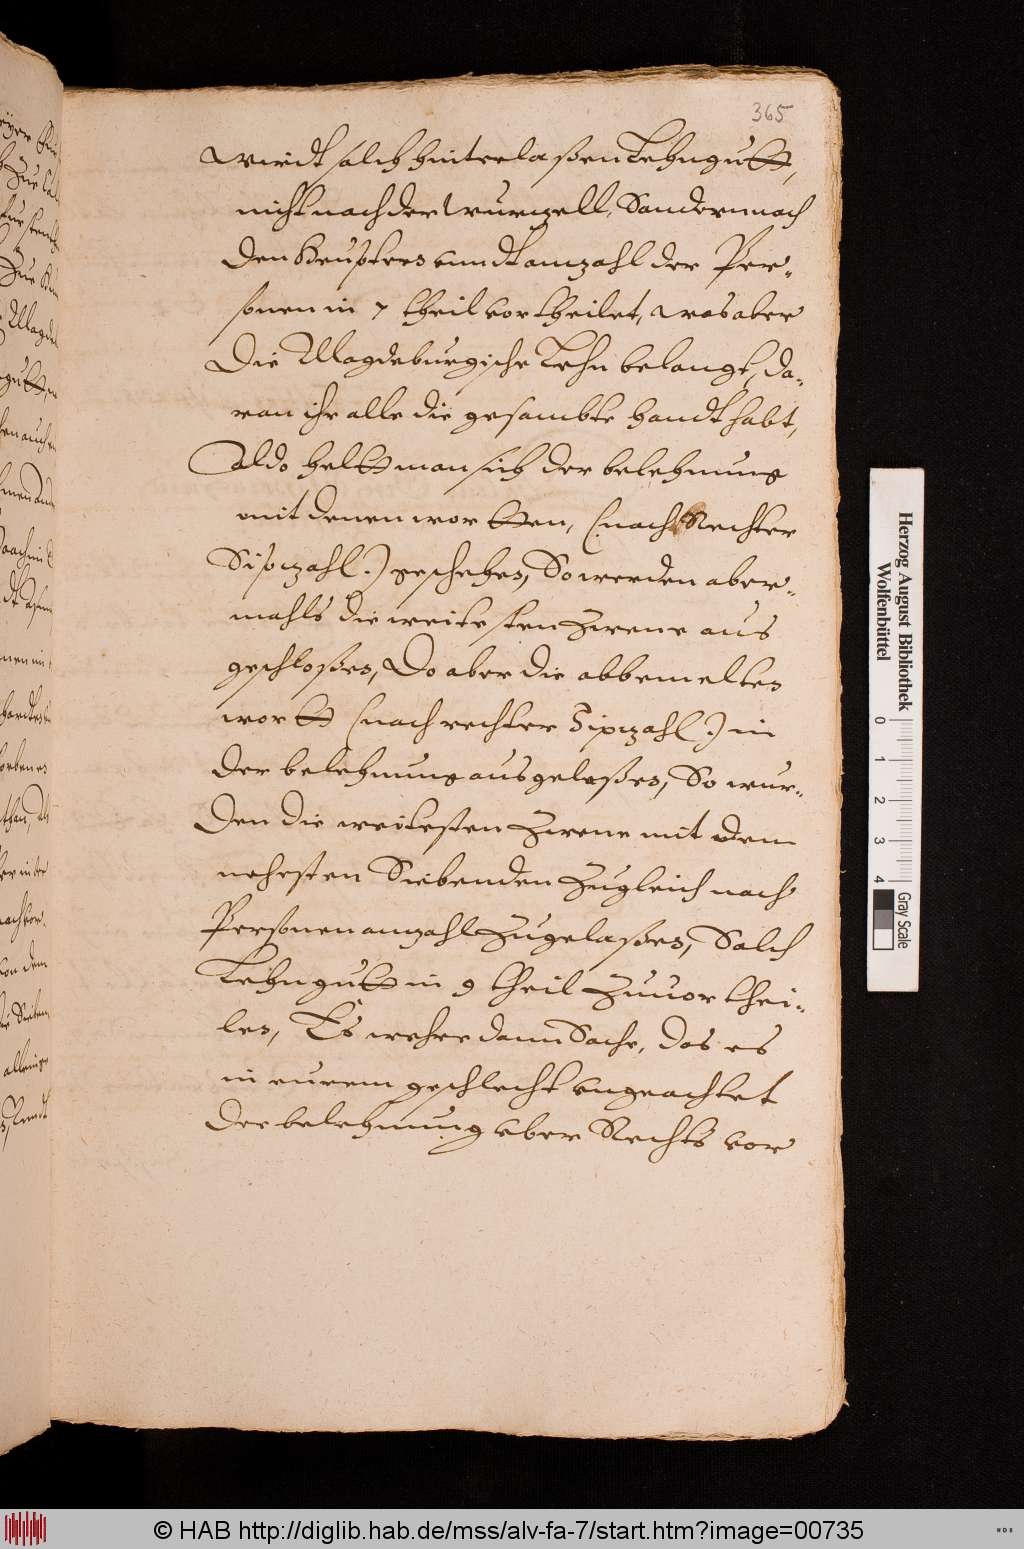 365
wirdt solch hinterlaßen Lehngutt,
nicht nach der Wurtzell, Sondern nach
den Heupters vnndt antzahl der Per-
sonen in 7 theil vortheilet, was aber
Die Magdeburgische Lehn belangt, da-
ran ihr alle die gesambte handt habt,
Aldo heltt man sich der belehnung
mit denen wortten, (nach Rechter
Siptzahl.) geschehes, So werden aber-
mahls die weitesten Zwene aus
geschloßes, Do aber die abbemeltes
wortt (nach rechter Siptzahl.) in
der belehnung ausgelaßes, So wur-
den die weitesten Zwene mit dem
nehesten Siebenden Zugleich nach
Personen antzahl Zugelaßes, Solch
Lehngutt in 9 theil Zuuorthei-
les, Es wehre dann Sache, das es
in eurem geschlecht vngeachtet
der belehnung vber Rechts vor
Herzog August Bibliothek
Wolfenbüttel
0 1 2 3 4
Gray Scale
© HAB http://diglib.hab.de/mss/alv-fa-7/start.htm?image=00735